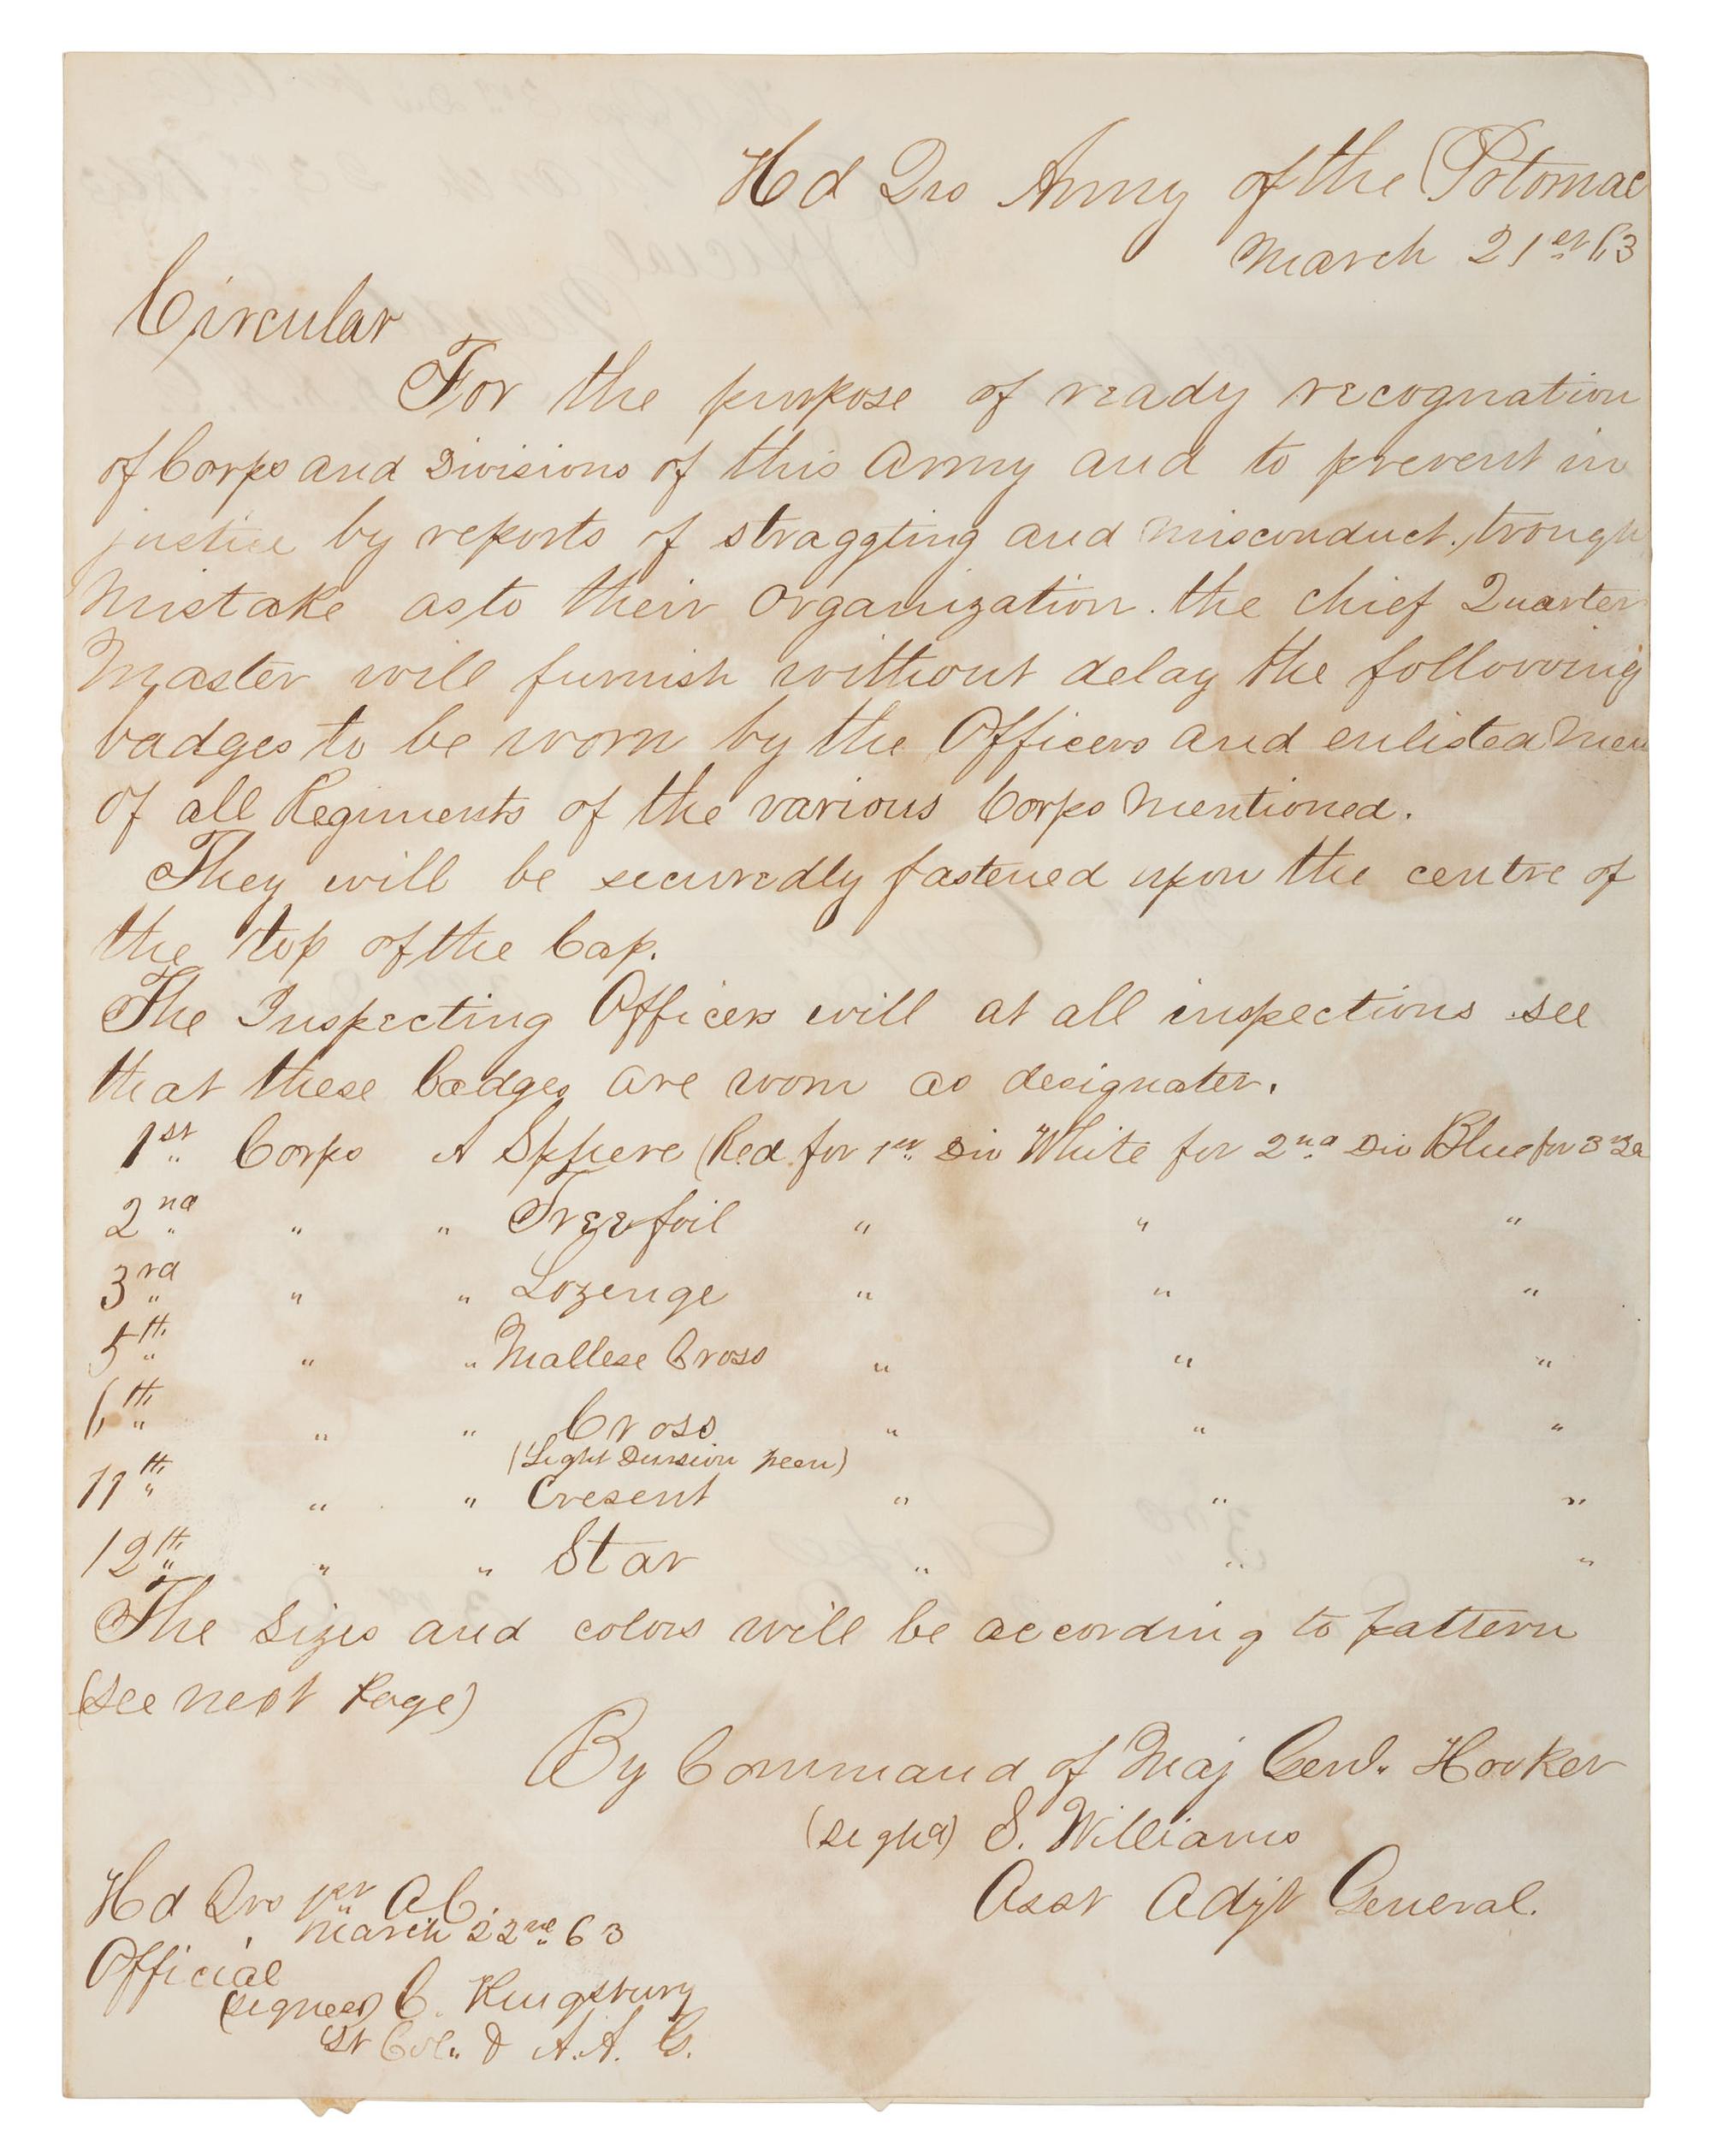 Hd Qrs Army of the Potomac
March 21st 63
Circular
For the purpose of ready recognation
of Corps and Divisions of this Army and to prevent in
justice by reports of straggting and misconduct, trough
mistake as to their Organization. the chief Quarter
Master will furnish without delay the following
badges to be worn by the Officers and enlisted Men
of all Regiments of the various Corps mentioned.
They will be securedly fastened upon the centre of
the top of the Cap.
The Inspecting Officers will at all inspections see
that these badges are worn as designater.
1st Corps A Sphere (Red for 1st Div White for 2nd Div Blue for 3rd
2nd " " Treefoil " " "
3rd " " Lozenge " " "
5th " " Mallese Cross " " "
6th " " Cross " " "
(Light Division )
11th " " Cresent " " "
12th " " Star " " "
The Sizes and colors will be according to pattern
(see next Page)
By Command of Maj Genl. Hooker
(sighd) S. Williams
Asst Adjt General.
Hd Qrs 1st A C.
March 22nd 63
Official
(signed) C. Kingsbury
Lt Col. & A. A. G.